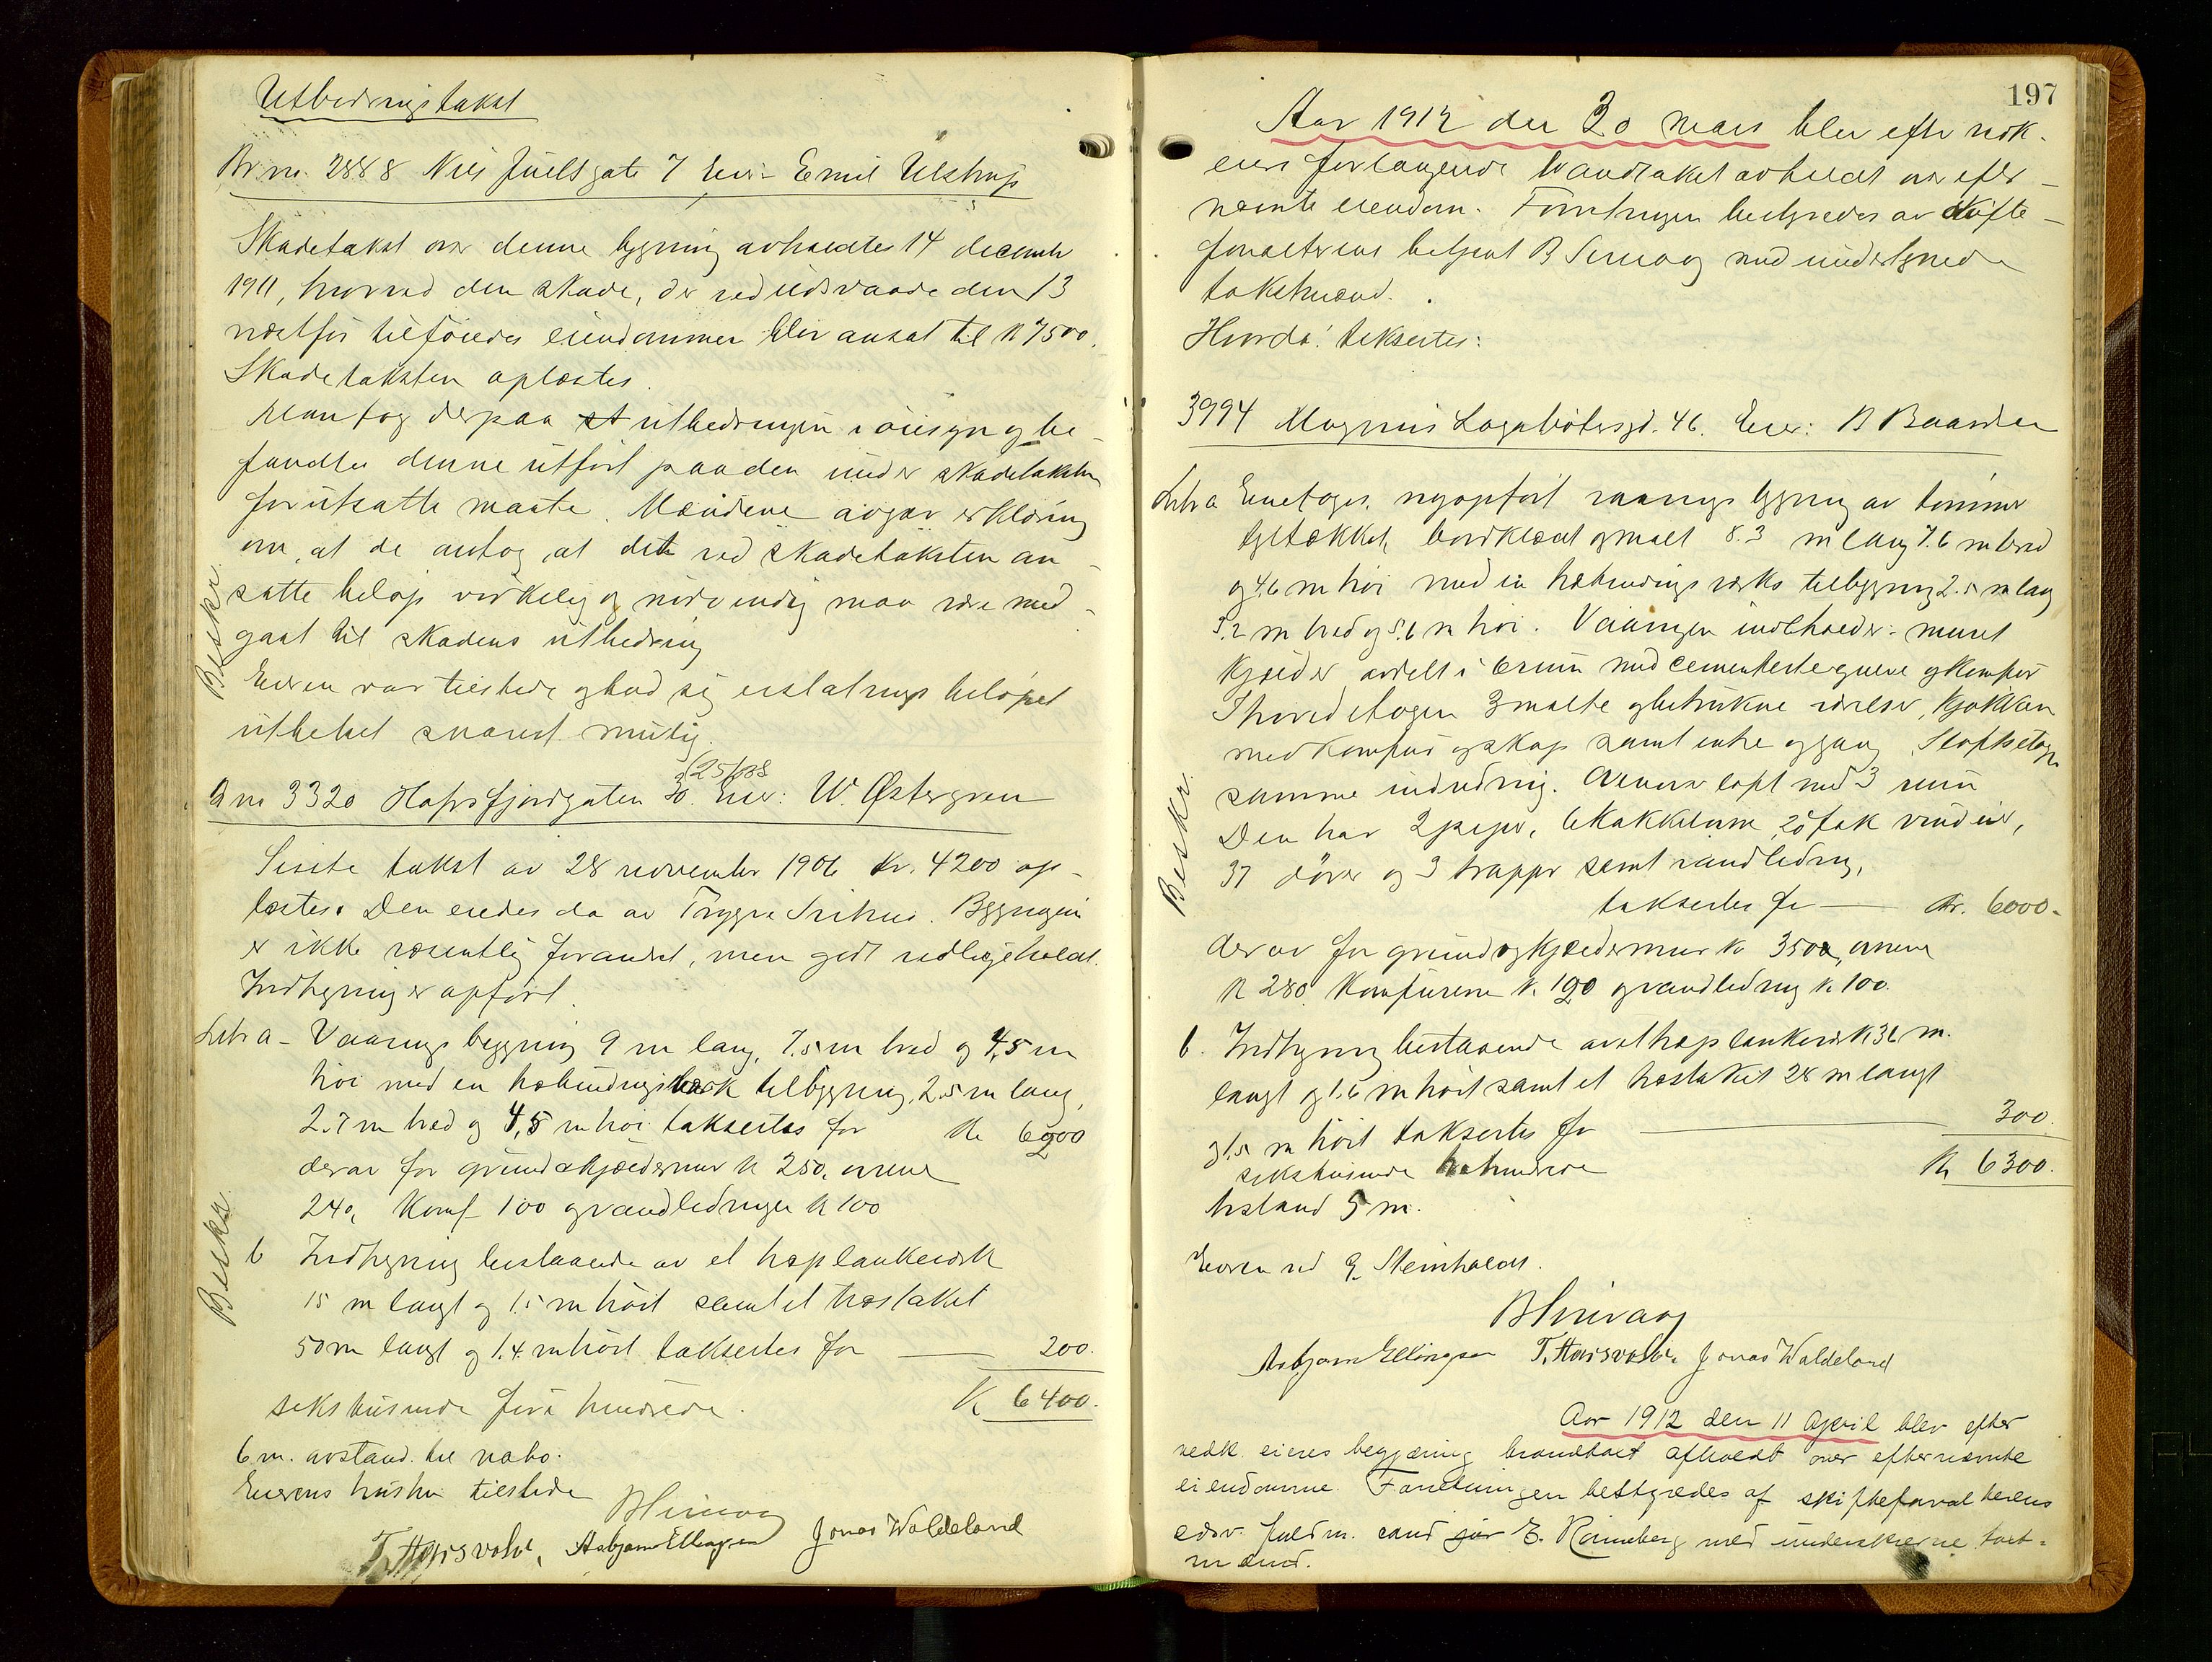 Utbedringstakst
Br no. 2888 Niels Juels gate 7 Eier Emil Ulstrup
Skadetakst over denne bygning avholdtes 14 decemb
1911, hvorved den skade, der ved ildsvaade den 13
næstfør tilføiedes eiendommen blev ansat til K 7500.
Skadetaksten oplæstes.
Man tog derpaa utbedringen i øiesyn og be-
fandtes denne utført paa den under skadetaksten
forutsatte maate. Mændene avgav erklæring
om, at de antog at det ved skadetaksten an-
satte beløp virkelig og nødvendig maa være med-
gaat til skadens utbedring
Eieren var tilstede og bad sig erstatnings beløpet
utbetalt snarest mulig.
B no 3320 Hafrsfjordgaten 30. Eier: W. Østergren
Sidste takst av 28 november 1906 Kr. 4200 op-
læstes. Den eiedes da av Trygve . Bygningen
er ikke væsentlig forandret, men godt vedlikeholdt.
Indhegning er opført.
Litr a - Vaanings bygning 9 m lang, 7.5 m bred og 4,5 m
høi med en halvbindingsværk tilbygning, 2.5 m lang,
2.7 m bred og 4,5 m høi taksertes for Kr 6200
derav for grund & kjældermur K 250, ovnene
240, Komf 100 og vandledningen K 100
Beskr.
b Indhegning bestaaende av et træplankeverk
15 m langt og 1.5 m høit samt et træstakit
50 m langt og 1.4 m høit taksertes for 200.
sekstusinde fire hundrede. K 6400.
6 m. avstand til nabo.
Eierens hustru tilstede
T. Hansvold, Asbjørn Ellingsen Jonas Waldeland
Beskr.
197
Aar 1912 den 30 mars blev efter vedk-
eiers forlangende brandtakst avholdt over efter-
nævnte eiendom. Forretningen bestyredes av skifte-
forvalterens betjent B. med undertegnede
takstmænd.
Hvorda! taksertes:
3994 Magnus Lagabøtersgt. 46. Eier: B Baardsen
Litr a Enetages, nyopført vaanings bygning av tømmer
teglstækket, bordklædt og malt 8.3 m lang 7.6 m bred
og 4.6 m høi med en halvbindings værks tilbygning 2.5 m lang
5.2 m bred og 5.6 m høi. Vaaningen indeholder: muret
kjælder avdelt i 6 rum med cementerte gulve og komfyr
I hovedetagen 3 malte og betrukne værelser, kjøkken
med komfyr og skap samt entre og gang. Loftsetage
samme indredning. Øverste loft med 3 rum
Den har 2 piper, 6 kakkelovne 20 fak vinduer,
37 døre og 3 trapper samt vandledning,
taksertes for Kr. 6000.
Beskr.
derav for grund og kjældermur Kr 350, ovnene
K 280 Komfurene K. 120 og vandledning K 100.
b. Indhegning bestaaende av et træplankeverk 36 m.
langt og 1.6 m høit samt et træstakit 28 m langt
og 1.5 m høit taksertes for 300.
sekstusinde trehundrede Kr 6300.
Avstand 5 m.
Eieren ved G. Steinholdt.
Asbjørn Ellingsen T. Hansvold. Jonas Waldeland
Aar 1912 den 11 April blev efter
vedk. eieres begjæring brandtaxt afholdt over efternævnte
eiendomme. Forretningen bestyredes af skifteforvalterens
edsv. fuldm. cand jur E. Rønneberg med underskrevne taxt-
mænd.